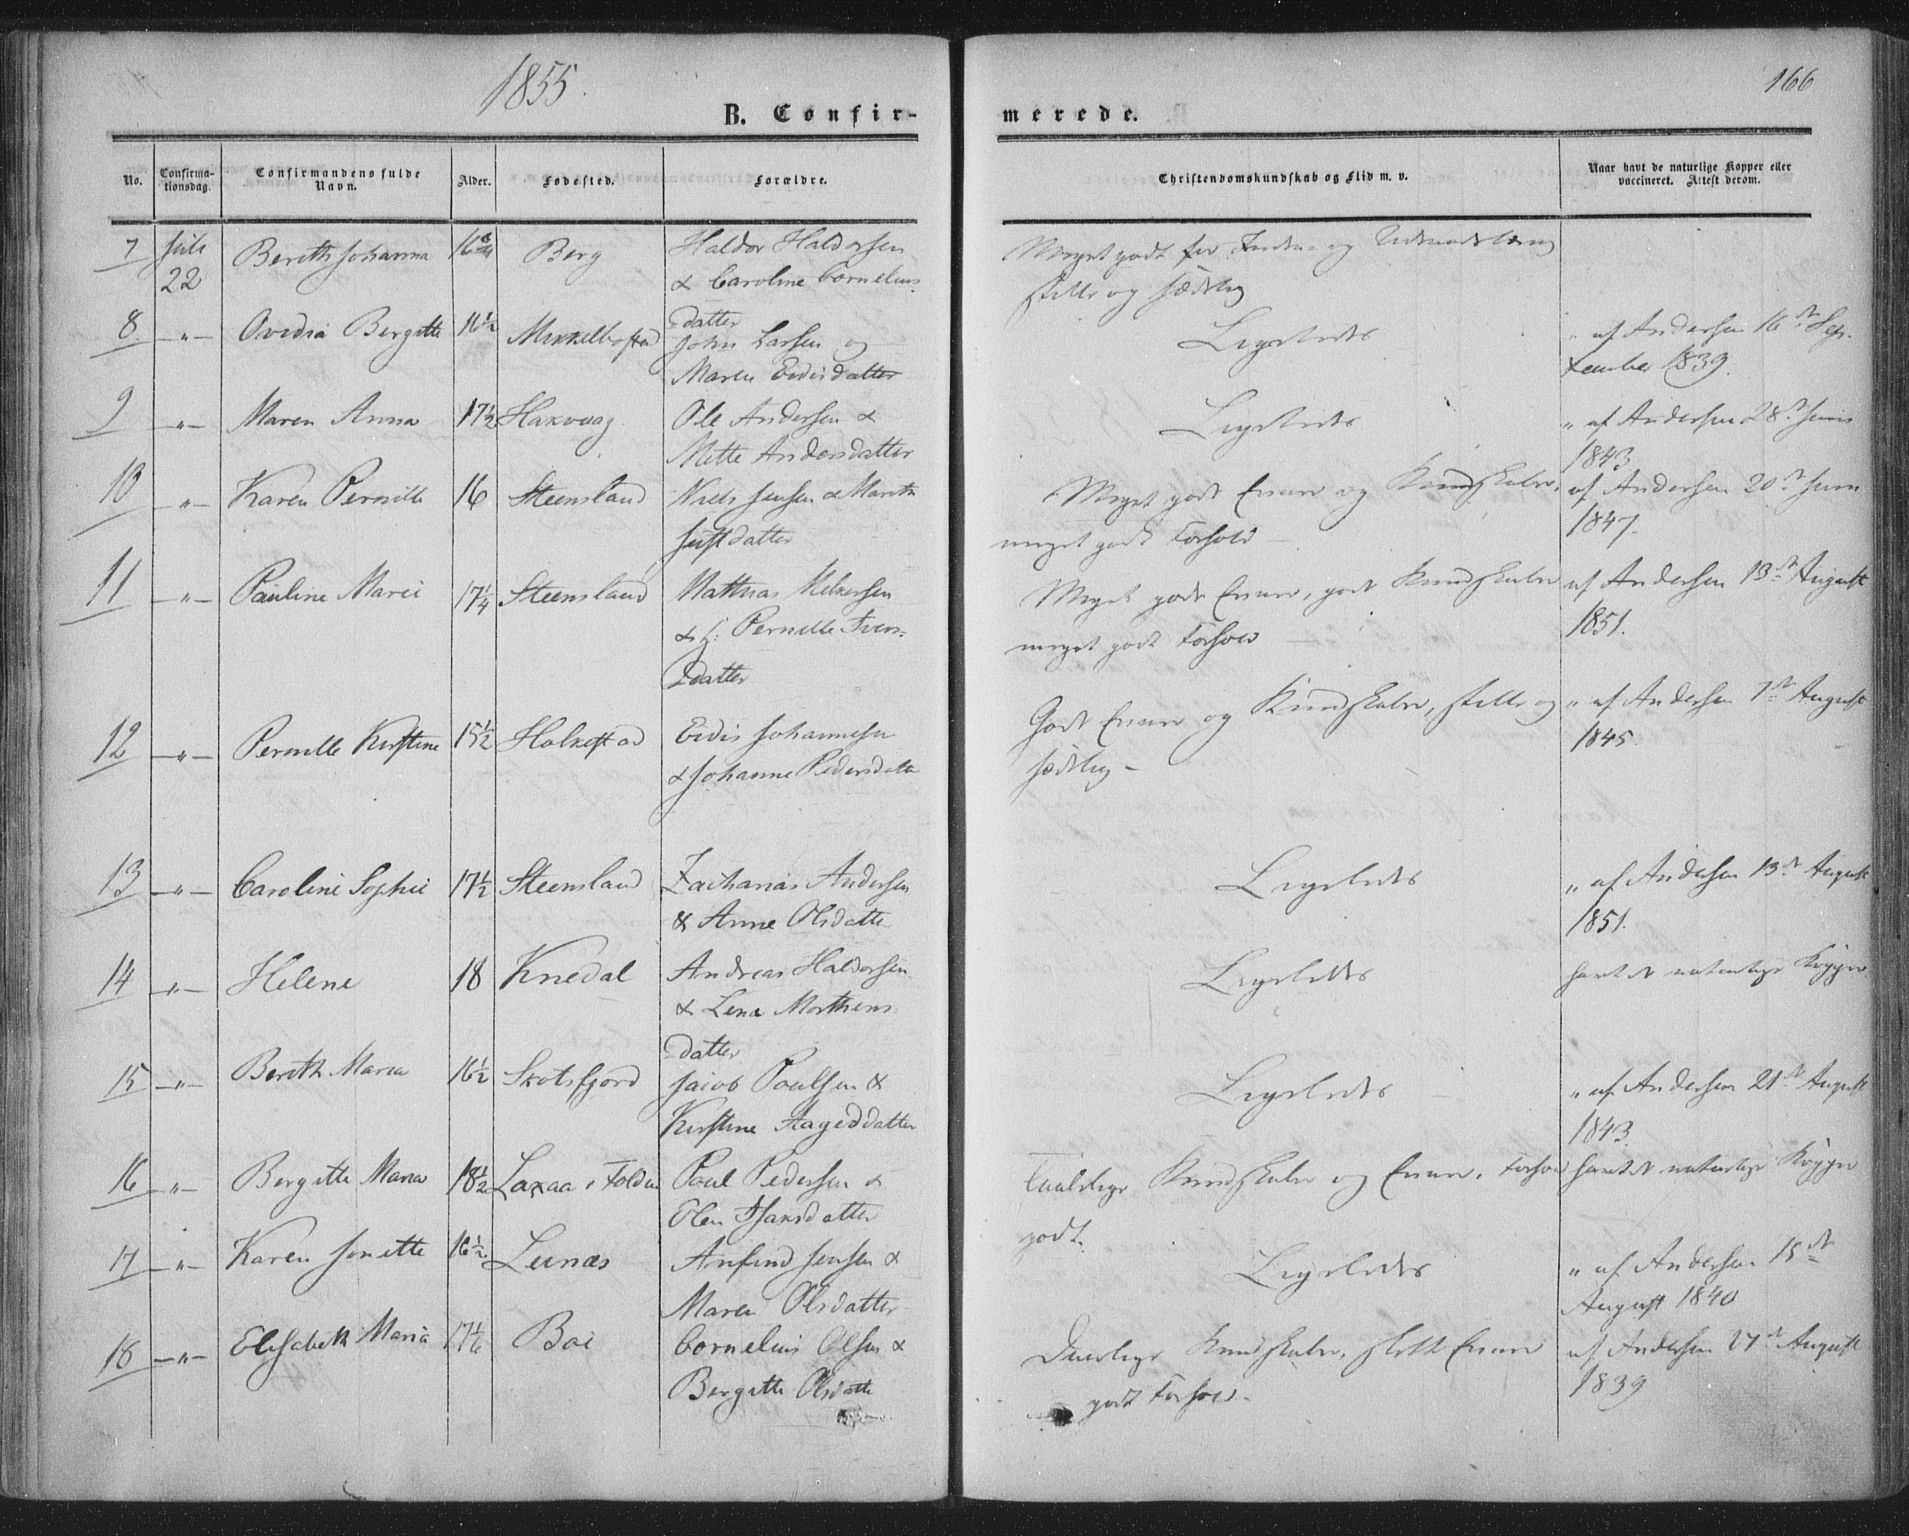 1855.
166
B. Confir-
merede.
No.
Confirma-
tionsdag.
Confirmandens fulde
Navn.
Alder.
Fødested.
Forældre.
Christendomskundskab og Flid m. v.
Naar havt de naturlige Kopper eller
vaccineret. Attest derom.
7 Juli 22 Bereth Johanna 16 3/4 Berg Haldor Haldorsen
& Caroline Cornelius-
datter
Meget godt for og
stille og sædelig
8 -"- Ovedia Bergitte 16 1/2 Mikkelbostad John Larsen og
Maren Eidisdatter
Ligeledes
" af Andersen 16de Sep-
tember 1839.
9 -"- Maren Anna 17 1/2 Haxvaag Ole Andersen &
Mette Andersdatter
Ligeledes
" af Andersen 28de Juni
1843
10 -"- Karen Pernille 16 Steensland Niels Jensen & Marith
Justdatter
Meget godt Evner og Kundskaber,
meget godt Forhold —
af Andersen 20de Juni
1847.
11 -"- Pauline Marie 17 1/4 Steensland Mathias Melkersen
& h: Pernille Iver-
datter
Meget gode Evner, godt Kundskaber
meget godt Forhold
af Andersen 13de August
1851.
12 -"- Pernille Kirstine 15 1/2 Holkestad Eidis Johannesen
& Johanne Pedersdatter
Godt Evner og Kundskaber, stille og
sædelig —
" af Andersen 7de August
1845.
13 -"- Caroline Sophie 17 1/2 Steensland Zacharias Andersen
& Anne Olsdatter
Ligeledes
" af Andersen 13de August
1851.
14 -"- Helene 18 Knedal Andreas Haldorsen
& Lena Morthens-
datter
Ligeledes
havt de naturlige Kopper
15 -"- Bereth Maria 16 1/2 Skotsfjord Jacob Poulsen &
Kirstine Aageddatter
Ligeledes
" af Andersen 21de August
1843.
16 -"- Bergitte Maria 18 1/2 Laxaa i Folden Paul Pedersen &
Elen Hansdatter
Taalelige Kundskaber og Evner, Forhold
godt.
havt de naturlige Kopper
17 -"- Karen Jonette 16 1/2 Leines Anfind Jensen &
Maren Olsdatter
Ligeledes
" af Andersen 15de
August 1840
18 -"- Elisabeth Maria 17 1/6 Boi Cornelius Olsen &
Bergitte Olsdatter
Daarlige Kundskaber, slette Evner
godt Forhold.
af Andersen 27de August
1839